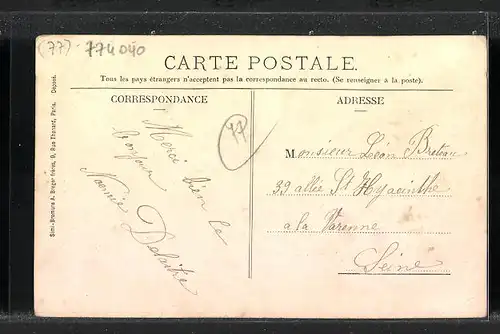 (77) 774040
CARTE POSTALE.
Tous les pays étrangers n'acceptent pas la correspondance au recto. (Se renseigner à la poste).
CORRESPONDANCE
ADRESSE
Merci bien le
bonjour
Noemie Delaitre
77
Monsieur Léon Breteau
39 allée St Hyacinthe
a la Varenne
Seine
Simi-Bromure A. Breger frères, 9, Rue Thénard, Paris. Déposé.